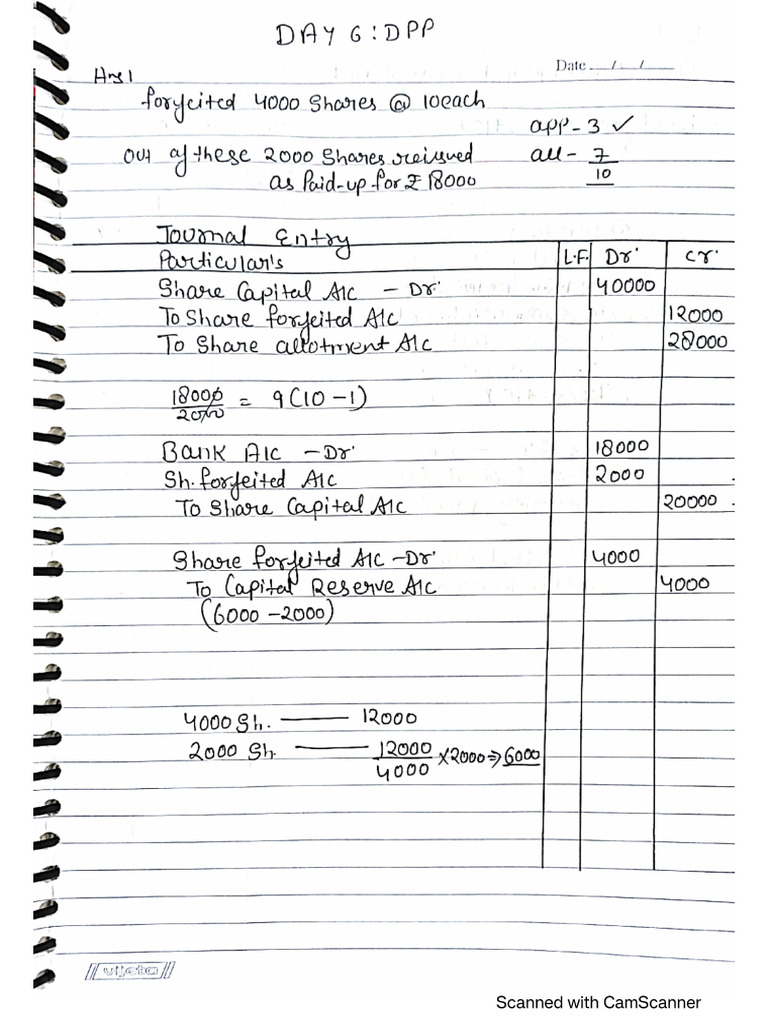 DAY 6 : DPP
Date __/__/____
Ans 1
forfeited 4000 Shares @ 10 each
app - 3 ✓
out of these 2000 Shares reissued all - 7
as Paid-up for ₹ 18000 10
Journal Entry
Particular's L.F. Dr. Cr.
Share Capital A/c - Dr. 40000
To Share forfeited A/c 12000
To Share allotment A/c 28000
18000/2000 = 9 (10 - 1)
Bank A/c - Dr. 18000
Sh. forfeited A/c 2000
To Share Capital A/c 20000
Share forfeited A/c - Dr. 4000
To Capital Reserve A/c 4000
(6000 - 2000)
4000 Sh. —— 12000
2000 Sh. —— 12000/4000 × 2000 ⇒ 6000
vijeta
Scanned with CamScanner